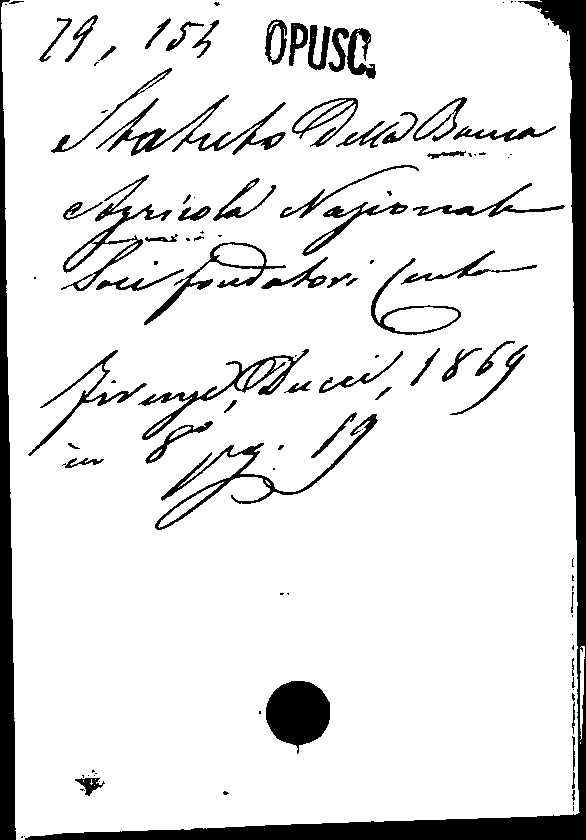 79, 154 OPUSC.
Statuto Della Banca
Agricola Nazionale
Soci fondatori Cento
Firenze, Ducci, 1869
in 8º pg. 19